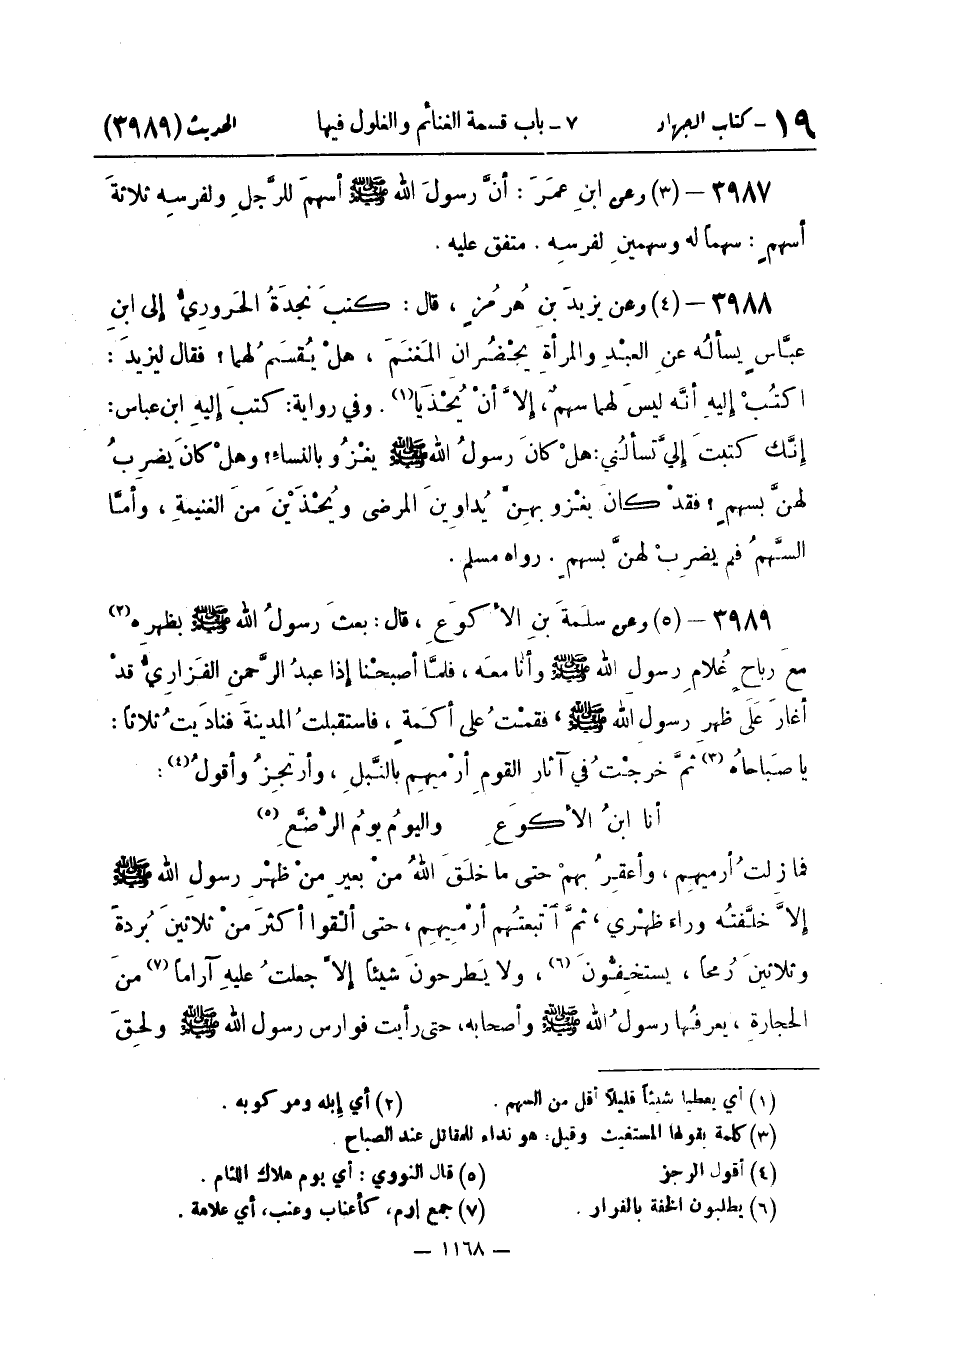 ١٩ - كتاب الجهاد ٧ - باب قسمة الغنائم والغلول فيها الحديث (٣٩٨٩)
٣٩٨٧ - (٣) وعن ابنِ عمَرَ : أنَّ رسولَ الله ﷺ أسهمَ للرَّجلِ ولفرسِه ثلاثةَ
أسهمٍ : سهماً له وسهمينِ لفرسِه . متفق عليه .
٣٩٨٨ - (٤) وعن يزيدَ بنِ هُرمُزٍ ، قال : كتبَ نجدَةُ الحَروريُّ إلى ابنِ
عبَّاسٍ يسألُه عنِ العبْدِ والمرأةِ يحْضُرانِ المَغنَمَ ، هلْ يُقسَمُ لهما ؟ فقال ليزيدَ :
اكتُبْ إليهِ أنَّه ليسَ لهما سهمٌ، إلاَّ أنْ يُحْذَيَا(١) . وفي رواية: كتبَ إليه ابن عباس:
إنَّك كتبتَ إليَّ تسألُني: هلْ كانَ رسولُ الله ﷺ يغْزُو بالنساءِ؟ وهلْ كانَ يضرِبُ
لهنَّ بسهمٍ ؟ فقدْ كانَ يغْزو بهِنَّ يُداوينَ المرضى ويُحْذَيْنَ منَ الغنيمةِ ، وأمَّا
السَّهمُ فلم يضرِبْ لهنَّ بسهمٍ . رواه مسلم .
٣٩٨٩ - (٥) وعن سلَمةَ بنِ الأكوَعِ ، قال : بعثَ رسولُ الله ﷺ بظهرِه(٢)
معَ رباحٍ غُلامِ رسولِ الله ﷺ وأنا معَه ، فلمَّا أصبحْنا إذا عبدُ الرَّحمنِ الفَزاريُّ قدْ
أغارَ عَلَى ظهرِ رسولِ الله ﷺ ، فقمْتُ على أكَمةٍ ، فاستقبلتُ المدينةَ فناديتُ ثلاثاً :
يا صبَاحاهُ (٣) ثمَّ خرجْتُ في آثارِ القومِ أرْميهِم بالنَّبلِ ، وأرتجِزُ وأقولُ(٤) :
أنا ابنُ الأكوَعِ واليومُ يومُ الرُّضَّعِ (٥)
فما زلتُ أرميهِم ، وأعقِرُ بهِمْ حتى ما خلَقَ اللهُ منْ بعيرٍ منْ ظهْرِ رسولِ الله ﷺ
إلاَّ خلَّفتُه وراءَ ظهْري ، ثمَّ اتَّبعتُهم أرْميهِم ، حتى ألْقَوا أكثرَ منْ ثلاثينَ بُردةً
وثلاثينَ رُمحاً ، يستخِفُّونَ (٦) ، ولا يَطرحونَ شيئاً إلاَّ جعلتُ عليهِ آراماً (٧) منَ
الحجارةِ ، يعرفُها رسولُ الله ﷺ وأصحابه، حتى رأيت فوارس رسول الله ﷺ ولحِقَ
(١) أي يعطيا شيئاً قليلاً أقل من السهم . (٢) أي إبله ومركوبه .
(٣) كلمة يقولها المستغيث وقيل: هو نداء للمقاتل عند الصباح .
(٤) أقول الرجز (٥) قال النووي : أي يوم هلاك اللئام .
(٦) يطلبون الخفة بالفرار . (٧) جمع إرم، كأعناب وعنب، أي علامة .
— ١١٦٨ —